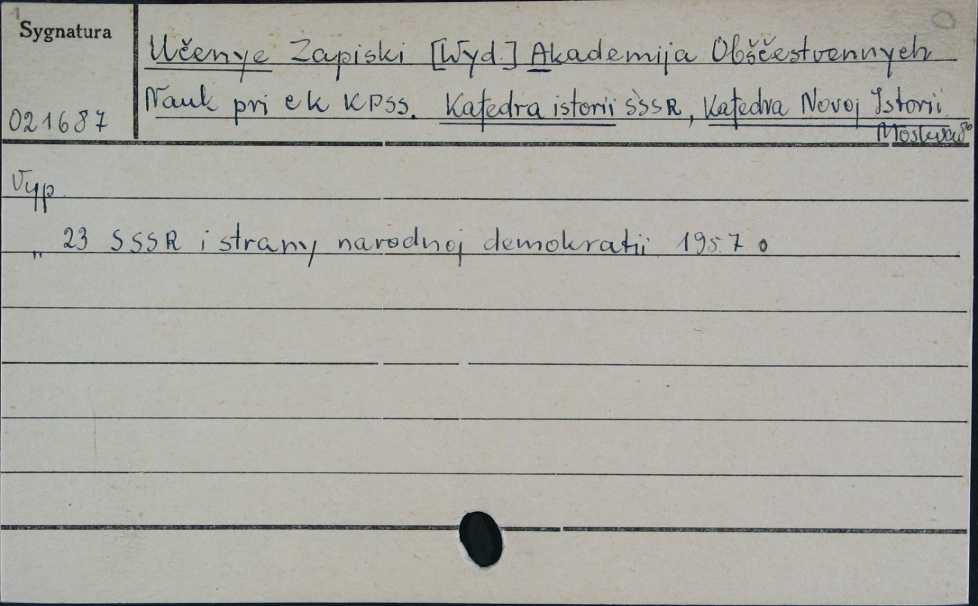 Sygnatura
021687
Učenye Zapiski [Wyd.] Akademija Obščestvennych
Nauk pri ck KPSS. Katedra istorii SSSR, Katedra Novoj Istorii
Moskwa
Vyp.
„ 23 SSSR i strany narodnoj demokratii 1957 o